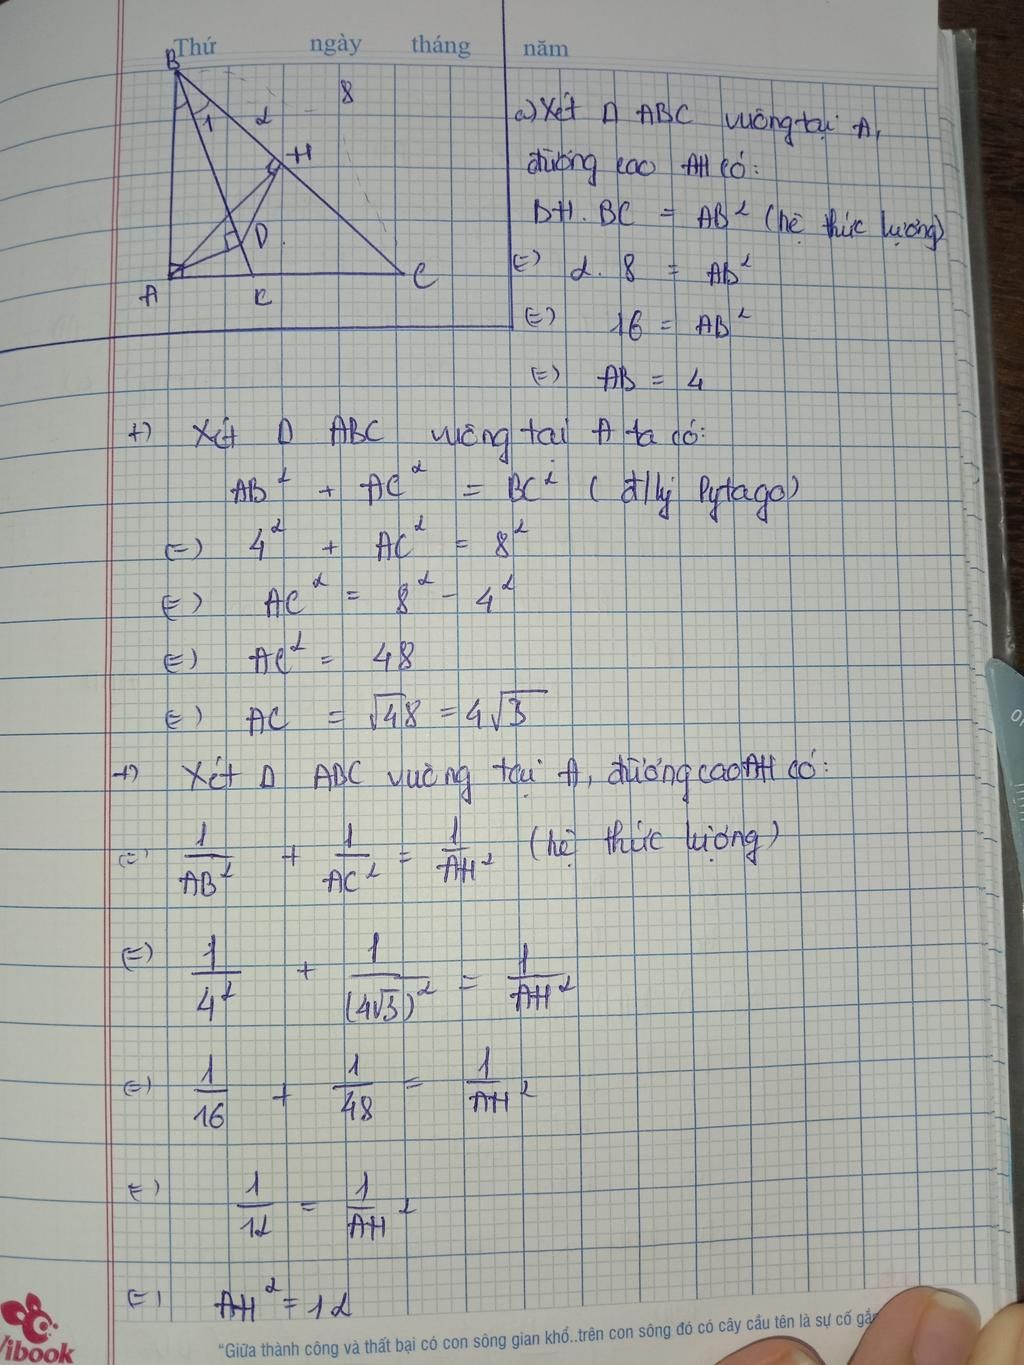 Thứ ngày tháng năm
B
8
1 2
H
D
A K C
a) Xét Δ ABC vuông tại A,
đường cao AH có:
BH. BC = AB² (hệ thức lượng)
(=) 2. 8 = AB²
(=) 16 = AB²
(=) AB = 4
+) Xét Δ ABC vuông tại A ta có:
AB² + AC² = BC² ( đ/lý Pytago)
(=) 4² + AC² = 8²
(=) AC² = 8² - 4²
(=) AC² = 48
(=) AC = √48 = 4√3
+) Xét Δ ABC vuông tại A, đường cao AH có:
(=) 1/AB² + 1/AC² = 1/AH² (hệ thức lượng)
(=) 1/4² + 1/(4√3)² = 1/AH²
(=) 1/16 + 1/48 = 1/AH²
(=) 1/12 = 1/AH²
(=) AH² = 12
"Giữa thành công và thất bại có con sông gian khổ..trên con sông đó có cây cầu tên là sự cố
Vibook